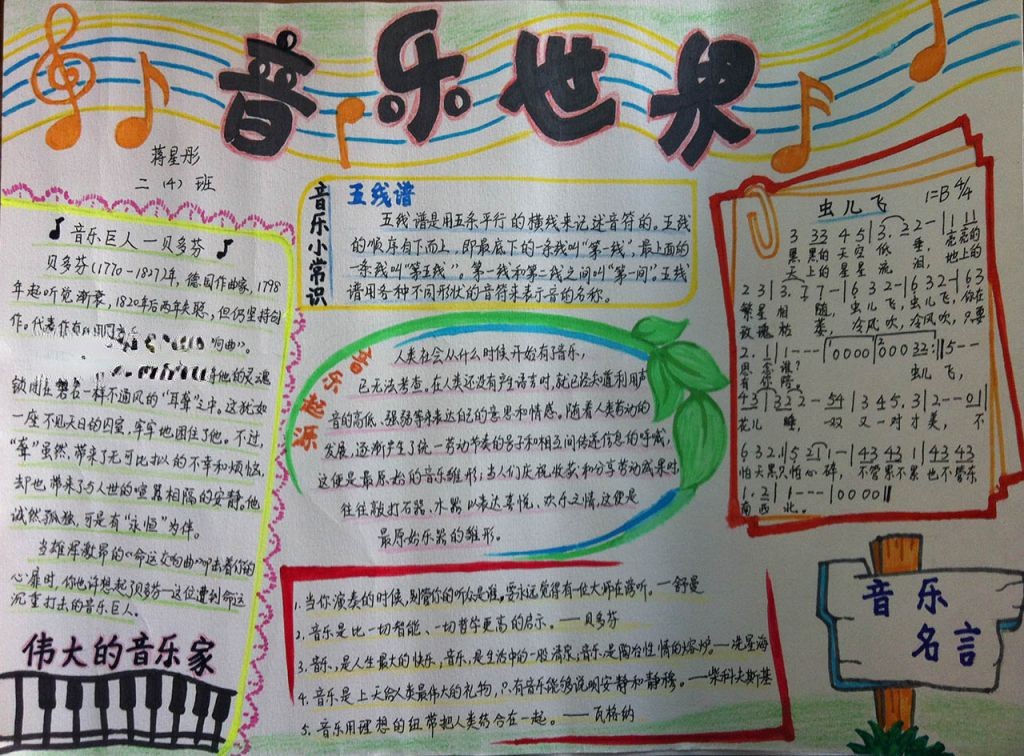 音乐世界
蒋星彤
二（4）班
♪音乐巨人—贝多芬♪
贝多芬（1770-1827）年，德国作曲家，1798
年起听觉渐衰，1820年后两年失聪，但仍坚持创
作。代表作有
响曲》。
他的灵魂
磐石一样不通风的"耳聋"之中。这犹如
一座不见天日的囚室，牢牢地困住了他。不过，
"聋"虽然带来了无可比拟的不幸和烦恼，
却也带来了与人世的喧嚣相隔的安静。他
诚然孤独，可是有"永恒"为伴。
当雄浑激昂的《命运交响曲》叩击着你的
心扉时，你也许想起了贝多芬—这位遭到命运
沉重打击的音乐巨人。
伟大的音乐家
音乐小常识
五线谱
五线谱是用五条平行的横线来记述音符的。五线
的顺序有下而上，即最底下的一条线叫"第一线"，最上面的
一条线叫"第五线"。第一线和第二线之间叫"第一间"。五线
谱用各种不同形状的音符来表示音的名称。
音乐起源
人类社会从什么时候开始有了音乐，
已无法考查。在人类还没有产生语言时，就已经知道利用声
音的高低、强弱等来表达自己的意思和情感。随着人类劳动的
发展，逐渐产生了统一劳动节奏的号子和相互间传递信息的呼喊，
这便是最原始的音乐雏形；当人们庆祝收获和分享劳动成果时，
往往敲打石器、木器以表达喜悦、欢乐之情，这便是
最原始乐器的雏形。
虫儿飞 1=B 4/4
3 33 4 5 | 3. 2 2 - | 1 11
黑 黑的 天 空 低 垂， 亮 亮的
天 上的 星 星 流 泪， 地上的
2 3 | 3. 7 7 - | 6 3 2 - | 6 3 2 - | 6 3
繁星 相 随， 虫儿飞，虫儿飞，你在
玫瑰 枯 萎， 冷风吹，冷风吹，只要
2. 1 | 1 - - - | 0 0 0 0 | 0 0 0 32 :|| 5 - -
思念 谁？
有你陪。 虫儿 飞，
43 | 32 2 - 54 | 3 4 5. 3 | 2 - - 01
花儿 睡， 一双 又 一 对 才 美， 不
6 3 2. 1 | 5 21 - 1 | 43 43 | 1 43 43
怕天黑只怕心碎， 不管累不累 也不管东
1. 2 | 1 - - - | 0 0 0 0 ||
南西 北。
1. 当你演奏的时候，别管你的听众是谁，要永远觉得有一位大师在旁听。—舒曼
2. 音乐是比一切智能、一切哲学更高的启示。——贝多芬
3. 音乐，是人生最大的快乐，音乐，是生活中的一股清泉，音乐，是陶冶性情的熔炉。—冼星海
4. 音乐是上天给人类最伟大的礼物，只有音乐能够说明安静和静穆。—柴科夫斯基
5. 音乐用理想的纽带把人类结合在一起。——瓦格纳
音乐
名言